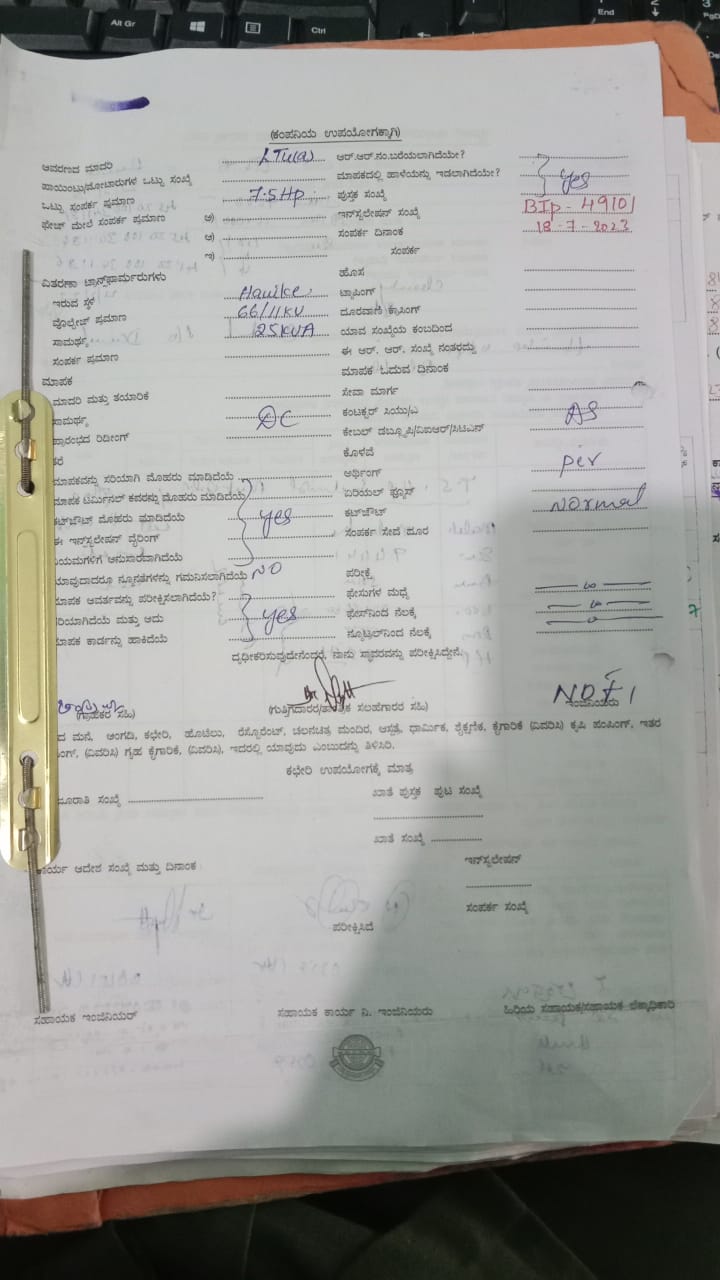 Alt Gr
Ctrl
End
(ಕಂಪನಿಯ ಉಪಯೋಗಕ್ಕಾಗಿ)
ಆವರಣದ ಮಾದರಿ ಆರ್.ಆರ್.ನಂ.ಬರೆಯಲಾಗಿದೆಯೇ?
ಪಾಯಿಂಟು/ಮೋಟಾರುಗಳ ಒಟ್ಟು ಸಂಖ್ಯೆ ಮಾಪಕದಲ್ಲಿ ಹಾಳೆಯನ್ನು ಇಡಲಾಗಿದೆಯೇ? yes
ಒಟ್ಟು ಸಂಪರ್ಕ ಪ್ರಮಾಣ 7.5Hp ಪುಸ್ತಕ ಸಂಖ್ಯೆ
ಫೇಜ್ ಮೇಲೆ ಸಂಪರ್ಕ ಪ್ರಮಾಣ ಅ) ಇನ್‌ಸ್ಟಲೇಷನ್ ಸಂಖ್ಯೆ BIP-49101
ಆ) ಸಂಪರ್ಕ ದಿನಾಂಕ 18-7-2023
ಇ) ಸಂಪರ್ಕ
ವಿತರಣಾ ಟ್ರಾನ್ಸ್‌ಫಾರ್ಮರುಗಳು ಹೊಸ
ಇರುವ ಸ್ಥಳ ಟ್ಯಾಪಿಂಗ್
ವೊಲ್ಟೇಜ್ ಪ್ರಮಾಣ 66/11KV ದೂರವಾಣಿ ಕ್ರಾಸಿಂಗ್
ಸಾಮರ್ಥ್ಯ 25KVA ಯಾವ ಸಂಖ್ಯೆಯ ಕಂಬದಿಂದ
ಸಂಪರ್ಕ ಪ್ರಮಾಣ ಈ ಆರ್. ಆರ್. ಸಂಖ್ಯೆ ನಂತರದ್ದು
ಮಾಪಕ ಮಾಪಕ ಓದುವ ದಿನಾಂಕ
ಮಾದರಿ ಮತ್ತು ತಯಾರಿಕೆ ಸೇವಾ ಮಾರ್ಗ
ಸಾಮರ್ಥ್ಯ DC ಕಂಟಕ್ಟರ್ ಸಿಯು/ಎ AS
ಪ್ರಾರಂಭದ ರಿಡೀಂಗ್ ಕೇಬಲ್ ಡಬ್ಲ್ಯೂಪಿ/ವಿಐಆರ್/ಸಿಟಿಎಸ್
ಕೊಳವೆ
ಮಾಪಕವನ್ನು ಸರಿಯಾಗಿ ಮೊಹರು ಮಾಡಿದೆಯೆ ಅರ್ಥಿಂಗ್ per
ಮಾಪಕ ಟರ್ಮಿನಲ್ ಕವರನ್ನು ಮೊಹರು ಮಾಡಿದೆಯೆ ಏರಿಯಲ್ ಫ್ಯೂಸ್
ಕಟ್‌ಔಟ್ ಮೊಹರು ಮಾಡಿದೆಯೆ yes ಕಟ್‌ಔಟ್ Normal
ಈ ಇನ್‌ಸ್ಟಲೇಷನ್ ವೈರಿಂಗ್ ಸಂಪರ್ಕ ಸೇವೆ ದೂರ
ಯಮಗಳಿಗೆ ಅನುಸಾರವಾಗಿದೆಯೆ
ಯಾವುದಾದರೂ ನ್ಯೂನತೆಗಳನ್ನು ಗಮನಿಸಲಾಗಿದೆಯೆ NO ಪರೀಕ್ಷೆ
ಮಾಪಕ ಆವರ್ತವನ್ನು ಪರೀಕ್ಷಿಸಲಾಗಿದೆಯೆ? ಫೇಸುಗಳ ಮಧ್ಯೆ ∞
ರಿಯಾಗಿದೆಯೆ ಮತ್ತು ಅದು yes ಫೇಸ್‌ನಿಂದ ನೆಲಕ್ಕೆ
ಮಾಪಕ ಕಾರ್ಡನ್ನು ಹಾಕಿದೆಯೆ ನ್ಯೂಟ್ರಲ್‌ನಿಂದ ನೆಲಕ್ಕೆ
ದೃಢೀಕರಿಸುವುದೇನೆಂದರೆ, ನಾನು ಸ್ಥಾವರವನ್ನು ಪರೀಕ್ಷಿಸಿದ್ದೇನೆ.
(ಗ್ರಾಹಕರ ಸಹಿ) (ಗುತ್ತಿಗೆದಾರರ/ತಾಂತ್ರಿಕ ಸಲಹೆಗಾರರ ಸಹಿ) ಇಂಜಿನಿಯರು
ದ ಮನೆ, ಅಂಗಡಿ, ಕಛೇರಿ, ಹೊಟೇಲು, ರೆಸ್ಟೋರೆಂಟ್, ಚಲನಚಿತ್ರ ಮಂದಿರ, ಆಸ್ಪತ್ರೆ, ಧಾರ್ಮಿಕ, ಶೈಕ್ಷಣಿಕ, ಕೈಗಾರಿಕೆ (ವಿವರಿಸಿ) ಕೃಷಿ ಪಂಪಿಂಗ್, ಇತರ
ಂಗ್, (ವಿವರಿಸಿ) ಗೃಹ ಕೈಗಾರಿಕೆ, (ವಿವರಿಸಿ), ಇದರಲ್ಲಿ ಯಾವುದು ಎಂಬುದನ್ನು ತಿಳಿಸಿರಿ.
ಕಛೇರಿ ಉಪಯೋಗಕ್ಕೆ ಮಾತ್ರ
ಸಂಖ್ಯೆ ಖಾತೆ ಪುಸ್ತಕ ಪುಟ ಸಂಖ್ಯೆ
ಖಾತೆ ಸಂಖ್ಯೆ
ಕಾರ್ಯ ಆದೇಶ ಸಂಖ್ಯೆ ಮತ್ತು ದಿನಾಂಕ ಇನ್‌ಸ್ಟಲೇಷನ್
ಸಂಪರ್ಕ ಸಂಖ್ಯೆ
ಪರೀಕ್ಷಿಸಿದೆ
ಸಹಾಯಕ ಇಂಜಿನಿಯರ್ ಸಹಾಯಕ ಕಾರ್ಯ ನಿ. ಇಂಜಿನಿಯರು ಹಿರಿಯ ಸಹಾಯಕ/ಸಹಾಯಕ ಲೆಕ್ಕಾಧಿಕಾರಿ